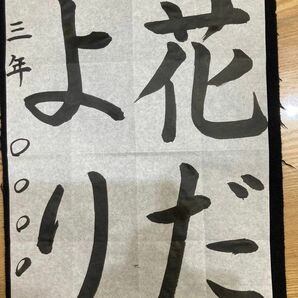 花だ
より
三年 〇〇〇〇